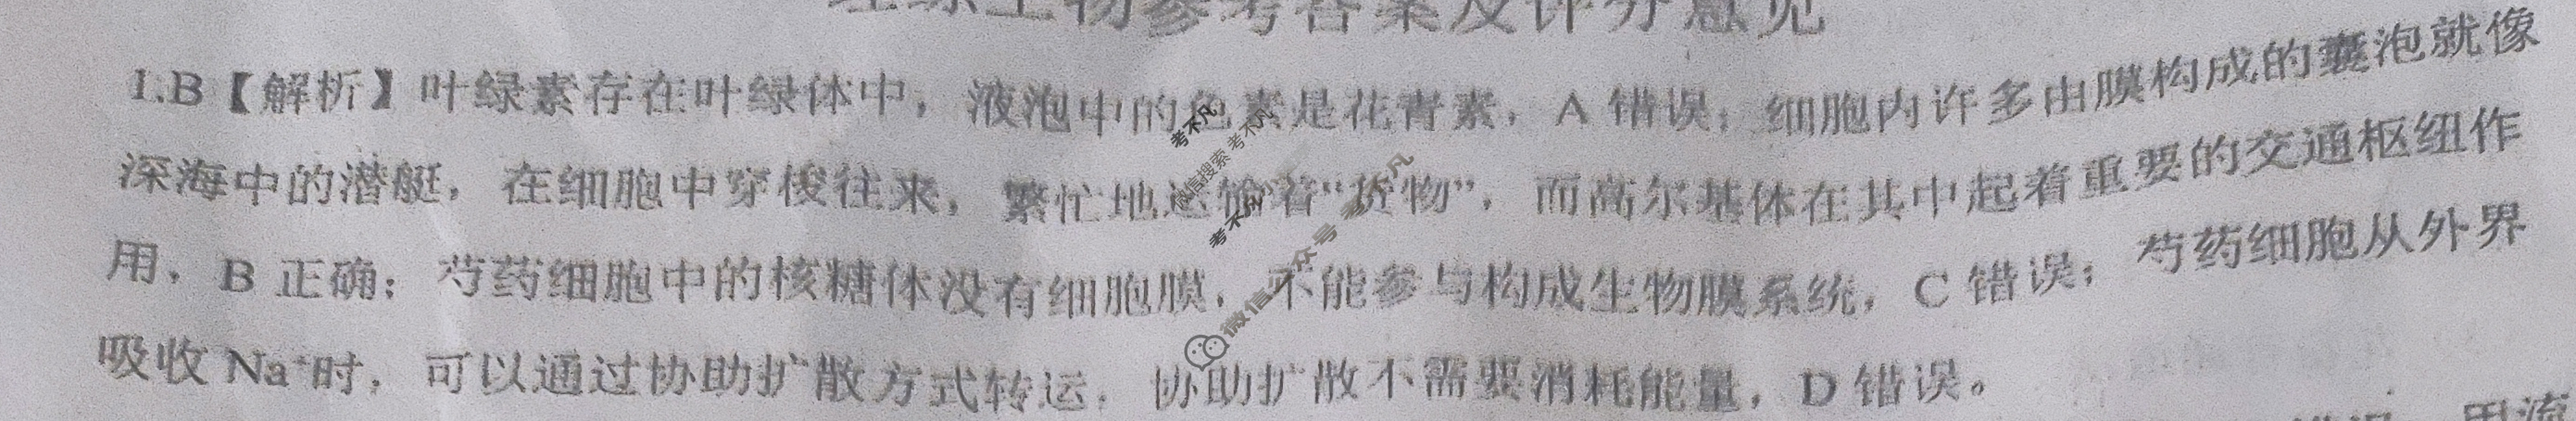 生物参考答案及评分意见
1.B【解析】叶绿素存在叶绿体中，液泡中的色素是花青素，A 错误；细胞内许多由膜构成的囊泡就像
深海中的潜艇，在细胞中穿梭往来，繁忙地运输着“货物”，而高尔基体在其中起着重要的交通枢纽作
用，B 正确；芍药细胞中的核糖体没有细胞膜，不能参与构成生物膜系统，C 错误；芍药细胞从外界
吸收 Na⁺时，可以通过协助扩散方式转运，协助扩散不需要消耗能量，D 错误。
考不凡
微信搜索 考不凡
微信公众号